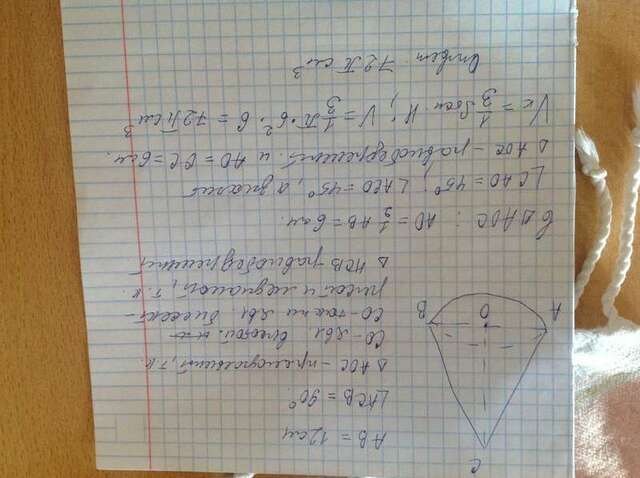 C
A
O
B
AB = 12см
∠ACB = 90°
△AOC - прямоугольный, т.к.
CO - явл. высотой.
CO - также явл. биссект-
рисой и медианой, т.к.
△ACB - равнобедренный
В △AOC: AO = 1/2 AB = 6 см.
∠CAO = 45°; ∠ACO = 45°, а значит
△AOC - равнобедренный и AO = OC = 6 см.
Vк = 1/3 Sосн · H; V = 1/3 π · 6² · 6 = 72π см³
Ответ 72π см³